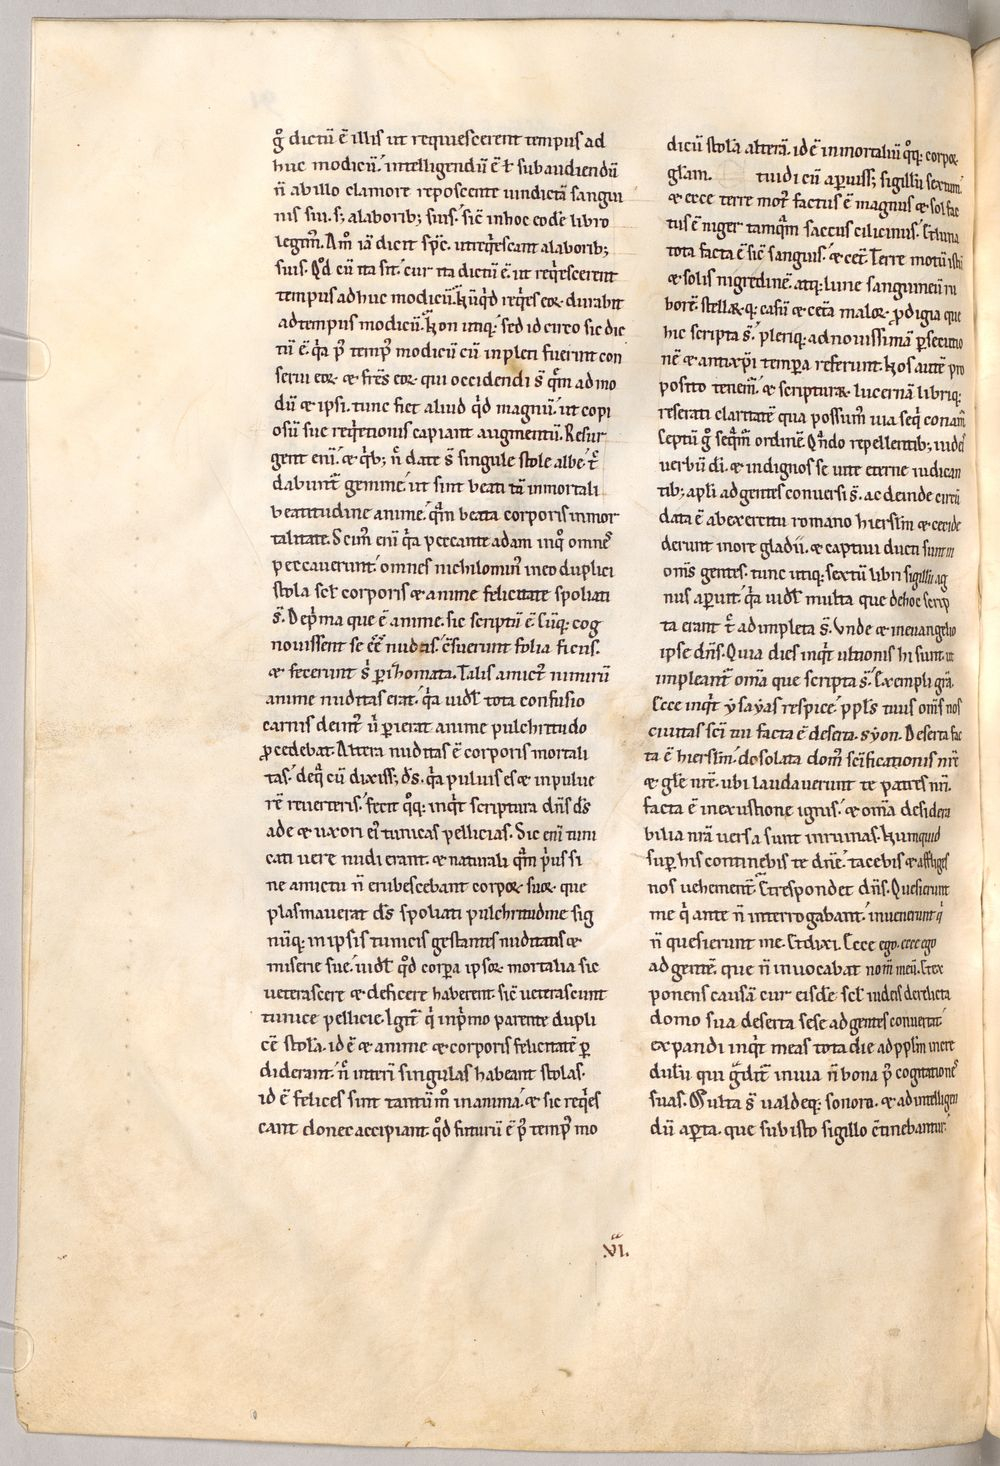 gͦ dictū ē illis ut requiescerent tempus ad
huc modicū. intelligendū ē ł subaudiendū
n̄ ab illo clamore reposcente uindictā sangui
nis sui. s; a laborib; suis. sic̄ in hoc eodē libro
legim̄. Am̄ iā dicit sp̄c. ut req̇escant a laborib;
suis. Qd̄ cū ita sit. cur ita dictū ē. ut req̇escerent
tempus adhuc modicū. Nūq̇d req̇es eoꝝ durabit
ad tempus modicū. Non utiq;. sed idcirco sic dic
tū ē. q̇a p̄ temp̄ modicū cū inpleti fuerint con
serui eoꝝ ⁊ frēs eoꝝ qui occidendi s̄ qm̄ ad mo
dū ⁊ ipsi. tunc fiet aliud q̇d magnū. ut copi
osū sue req̇etionis capiant augmentū. Resur
gent eni. ⁊ q̇b; n̄ date s̄ singule stole albe. t̄
dabunt̄ gemine. ut sint beati tā inmortali
beatitudine anime. qm̄ beata corporis inmor
talitate. Scim̄ eni q̇a peccante adam in qͦ omnes
peccauerunt. omnes nichilomin̄ in eo duplici
stola scł corporis ⁊ anime felicitate spoliati
s̄. De ṗma que ē anime. sic scriptū ē. Cūq; cog
nouissent se eē nudos. c̄suerunt folia ficus.
⁊ fecerunt s̄ ꝑizomata. Talis amict̄ nimirū
anime nuditas erat. q̇a uidł tota confusio
carnis deint̄ ꝑierat anime pulchritudo
ꝓcedebat. Altera nuditas ē corporis mortali
tas. de q̇ cū dixiss; dś. q̇a puluis es ⁊ in pulue
rē reuerteris. fecit qͦq; inq̇t scriptura dn̄s dś
ade ⁊ uxori ei tunicas pellicias. Sic eni tuni
cati uere nudi erant. ⁊ naturali qm̄ ṗus si
ne amictu n̄ erubescebant corpoꝝ suoꝝ que
plasmauerat dś spoliati pulchritudine sig
nūq; in ipsis tunicis gestantes nuditatis ⁊
miserie sue. uidł qd̄ corpora ipsoꝝ mortalia sic
ueterascere ⁊ deficere haberent. sic̄ ueterascunt
tunice pellicie. Igit̄ q̇ in ṗmo parente dupli
cē stolā. id ē ⁊ anime ⁊ corporis felicitatē ꝑ
diderant. n̄ interi singulas habeant stolas.
id ē felices sint tantūm̄ in anima. ⁊ sic req̇es
cant donec accipiant. qd̄ futurū ē p̄ temp̄ mo
dicū stolā alterā. id ē inmortaliū qͦq; corpoꝝ
glām. t uidi cū aperuiss; sigillū sextum.
⁊ ecce terre mot̄ factus ē magnus ⁊ sol fac
tus ē niger tamqm̄ saccus cilicinus. Et luna
tota facta ē sic̄ sanguis. ⁊ cet̄. Terre motū istū
⁊ solis nigredinē. atq; lune sanguineū ru
borē. stellaꝝq; casū ⁊ cet̄a maloꝝ ꝓdigia que
hic scripta s̄. pleriq; ad nouissimā ꝑsecutio
nē ⁊ antixp̄i tempora referunt. Nos autē pro
posito tenem̄. ⁊ scripturaꝝ lucernā libriq;
reserati claritatē qua possum̄ uia seq̇ conam̄
Ceptū gͦ seqm̄ ordinē. Qn̄do repellentib; iudeis
uerbū dī. ⁊ indignos se uite eterne iudican
tib; apłi ad gentes conuersi s̄. ac deinde circū
data ē ab exercitu romano hierslm̄ ⁊ cecide
derunt in ore gladii. ⁊ captiui ducti sunt in
om̄s gentes. tunc utiq; sextū libri sigillū ag
nus aperuit. q̇a uidł multa que de hoc scrip
ta erant t̄ adimpleta s̄. Vnde ⁊ in euangelio
ipse dn̄s. Quia dies inq̇t ultionis hi sunt. ut
impleant̄ om̄a que scripta s̄. Exempli grā.
Ecce inq̇t ysayas respice. ppłs tuus om̄s nos
ciuitas scī tui facta ē deserta. syon. Deserta fac
ta ē hierslm̄. desolata dom̄ scīficationis nr̄e
⁊ glē nr̄e. ubi laudauerunt te patres nr̄i.
facta ē in exustione ignis. ⁊ om̄a desidera
bilia nr̄a uersa sunt in ruinas. Numquid
sup̄ his continebis te dn̄e. tacebis ⁊ affliges
nos uehement̄. Et respondet dn̄s. Quesierunt
me q̇ ante n̄ interrogabant. inuenerunt q̇
n̄ quesierunt me. Et dixi. Ecce ego. ecce ego
ad gentē. que n̄ inuocabat nom̄ meū. Et ex
ponens causā cur eisdē scł iudeis derelicta
domo sua deserta sese ad gentes conuertat.
expandi inq̇t meas tota die ad ppłm incre
dulū qui g̊dit̄ in uia n̄ bona p̄ cogitationes
suas. Multa s̄ ualdeq; sonora. ⁊ ad intelligen
dū aperta. que sub isto sigillo c̄tinebantur.
.VI.